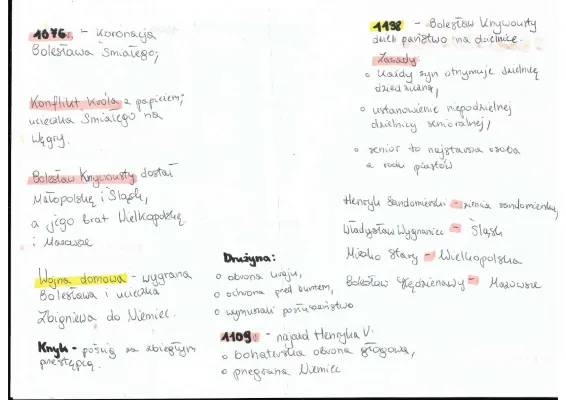 1076r. - Koronacja
Bolesława Śmiałego;
Konflikt Króla z papieżem;
ucieczka Śmiałego na
Węgry.
Bolesław Krzywousty dostał
Małopolskę i Śląsk,
a jego brat Wielkopolskę
i Mazowsze
Wojna domowa - wygrana
Bolesława i ucieczka
Zbigniewa do Niemiec.
Knyk - pościg za zbiegłym
przestępcą.
Drużyna:
o obrona kraju,
o ochrona przed buntem,
o wymuszali posłuszeństwo
1109r. - najazd Henryka V.
o bohaterska obrona głogowa,
o przegrana Niemiec
1138 - Bolesław Krzywousty
dzieli państwo na dzielnice.
Zasady
o Każdy syn otrzymuje dzielnicę
dziedziczną,
o ustanowienie niepodzielnej
dzielnicy senioralnej,
o senior to najstarsza osoba
z rodu piastów
Henryk Sandomierski - ziemia sandomierska,
Władysław Wygnaniec - Śląsk
Mieszko Stary - Wielkopolska
Bolesław Kędzierzawy - Mazowsze